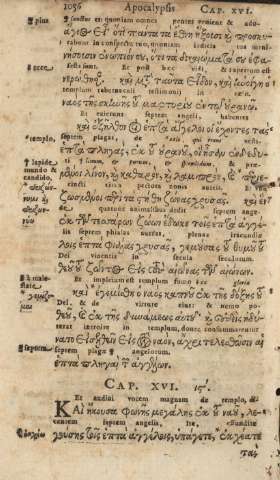 1056 Apocalypsis CAP. XVI.
sanctus es: quoniam omnes gentes venient & ado-
ὅτι πάντα τὰ ἔθνη ἥξουσι καὶ προσκυ-
rabunt in conspectu tuo, quoniam iudicia tua mani-
νήσουσιν ἐνώπιόν σου, ὅτι τὰ δικαιώματά σου ἐφα-
festa sunt. post hæc vidi, & apertum est
νερώθησαν. καὶ μετὰ ταῦτα εἶδον, καὶ ἰδοὺ ἠνοίγη ὁ
templum tabernaculi testimonii in cælo:
ναὸς τῆς σκηνῆς τοῦ μαρτυρίου ἐν τῷ οὐρανῷ.
Et exierunt septem angeli, habentes
καὶ ἐξῆλθον οἱ ἑπτὰ ἄγγελοι οἱ ἔχοντες τὰς
septem plagas, de
ἑπτὰ πληγὰς, ἐκ τοῦ οὐρανοῦ,
templo,
lapide mundo & candido,
μένοι λίνον, καθαρὸν, καὶ λαμπρὸν, καὶ περιε-
cincti circa pectora zonis aureis. Et
ζωσμένοι περὶ τὰ στήθη ζώνας χρυσᾶς. καὶ ἓν
quatuor animalibus dedit septem ange-
ἐκ τῶν τεσσάρων ζώων ἔδωκε τοῖς ἑπτὰ ἀγγέ-
lis septem phialas aureas, plenas iracundiæ
λοις ἑπτὰ φιάλας χρυσᾶς, γεμούσας τοῦ θυμοῦ τοῦ
Dei viventis in secula seculorum.
θεοῦ τοῦ ζῶντος εἰς τοὺς αἰῶνας τῶν αἰώνων.
Et impletum est templum fumo
καὶ ἐγεμίσθη ὁ ναὸς καπνοῦ ἐκ τῆς δόξης τοῦ
Dei, & de virtute eius: & nemo po-
θεοῦ, καὶ ἐκ τῆς δυνάμεως αὐτοῦ· καὶ οὐδεὶς ἠδύ-
terat introire in templum, donec consummarentur
νατο εἰσελθεῖν εἰς τὸν ναὸν, ἄχρι τελεσθῶσιν αἱ
septem plagæ angelorum.
ἑπτὰ πληγαὶ τῶν ἀγγέλων.
CAP. XVI. ιϛʹ.
Et audivi vocem magnam de templo, di-
Καὶ ἤκουσα φωνῆς μεγάλης ἐκ τοῦ ναοῦ, λε-
centem septem angelis, Ite, effundite
γούσης τοῖς ἑπτὰ ἀγγέλοις, ὑπάγετε, ἐκχέατε
τὰς